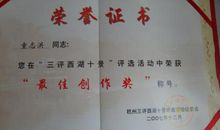 荣誉证书
童志洪 同志：
您在“三评西湖十景”评选活动中荣获
“最佳创作奖”称号。
杭州三评西湖十景
二〇〇七年十二月